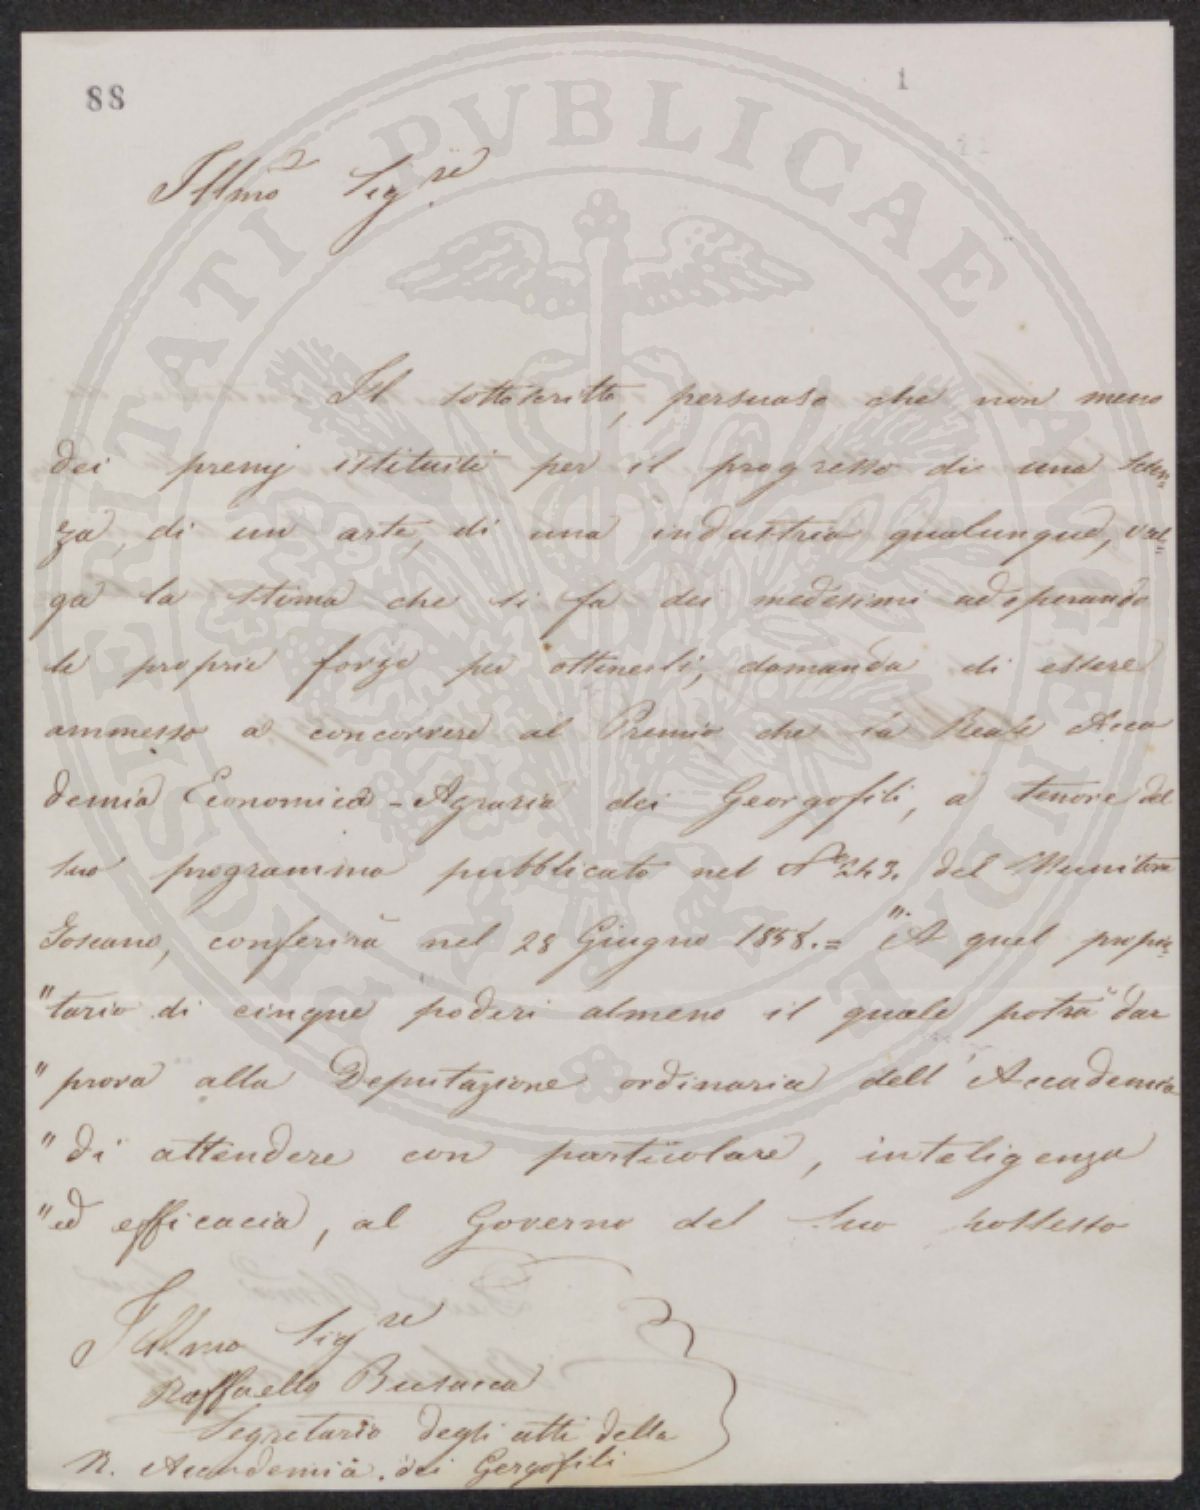 88
1
PROSPERITATI PUBLICAE AUGENDAE
Illmo Sigre
Il sottoscritto, persuaso che non meno
dei premj istituiti per il progresso di una scien=
za, di un arte, di una industria qualunque, val=
ga la stima che si fa dei medesimi adoperando
le proprie forze per ottenerli, domanda di essere
ammesso a concorrere al Premio che la Reale Acca
demia Economica-Agraria dei Georgofili, a tenore del
suo programma pubblicato nel No 243. del Monitore
Toscano, conferirà nel 28 Giugno 1858.= "A quel proprie=
"tario di cinque poderi almeno il quale potrà dar
" prova alla Deputazione ordinaria dell' Accademia
" di attendere con particolare, inteligenza
" ed efficacia, al Governo del suo possesso
Illmo Sigre
Raffaello Busacca
Segretario degli atti della
R. Accademia dei Gergofili